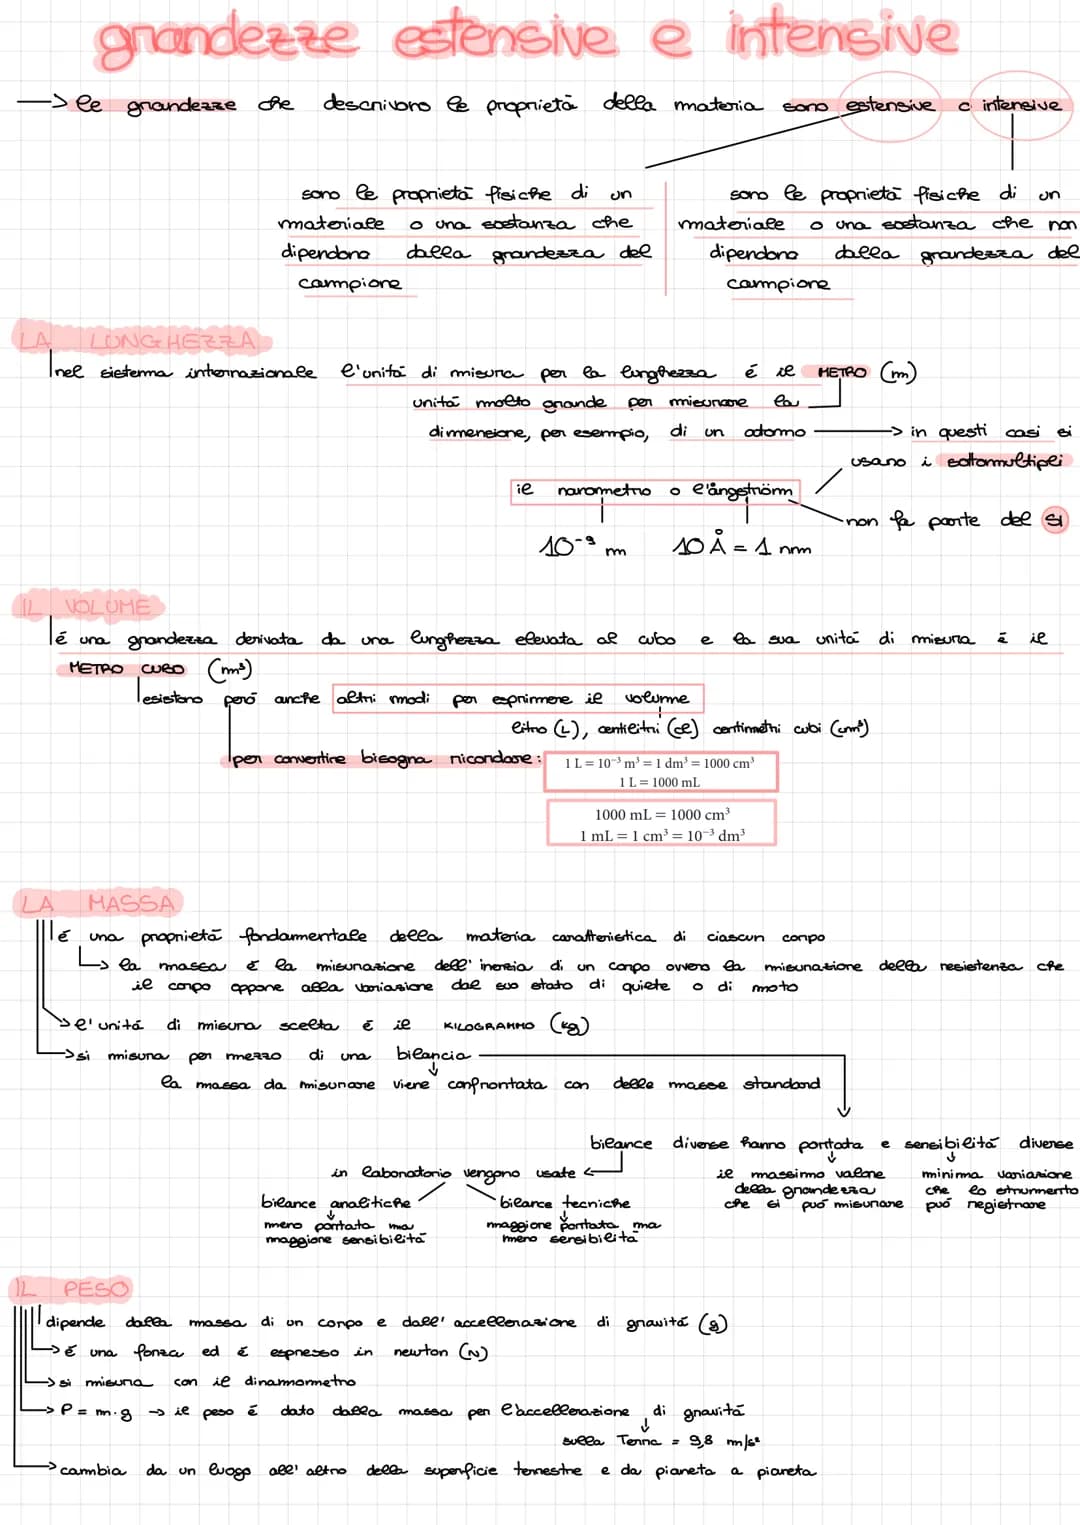 grandezze estensive e intensive
—> le grandezze che descrivono le proprietà della materia sono estensive o intensive
sono le proprietà fisiche di un
materiale o una sostanza che
dipendono dalla grandezza del
campione
sono le proprietà fisiche di un
materiale o una sostanza che non
dipendono dalla grandezza del
campione
LA LUNGHEZZA
nel sistema internazionale l'unità di misura per la lunghezza é il METRO (m)
unità molto grande per misurare la
dimensione, per esempio, di un adomo —> in questi casi si
usano i sottomultipli
il nanometro o l'ångström
non fa parte del SI
10⁻⁹ m 10 Å = 1 nm
IL VOLUME
é una grandezza derivata da una lunghezza elevata al cubo e la sua unità di misura é il
METRO CUBO (m³)
esistono però anche altri modi per esprimere il volume
litro (L), centilitri (cl) centimetri cubi (cm³)
per convertire bisogna ricordare:
1 L = 10⁻³ m³ = 1 dm³ = 1000 cm³
1 L = 1000 mL
1000 mL = 1000 cm³
1 mL = 1 cm³ = 10⁻³ dm³
LA MASSA
é una proprietà fondamentale della materia caratteristica di ciascun corpo
—> la massa é la misurazione dell'inerzia di un corpo ovvero la misurazione della resistenza che
il corpo oppone alla variazione dal suo stato di quiete o di moto
—> l'unità di misura scelta é il KILOGRAMMO (kg)
—> si misura per mezzo di una bilancia
la massa da misurare viene confrontata con delle masse standard
bilance diverse hanno portata e sensibilità diverse
in laboratorio vengono usate
il massimo valore
della grandezza
che si può misurare
minima variazione
che lo strumento
può registrare
bilance analitiche
meno portata ma
maggiore sensibilità
bilance tecniche
maggiore portata ma
meno sensibilità
IL PESO
dipende dalla massa di un corpo e dall'accellerazione di gravità (g)
—> é una forza ed é espresso in newton (N)
—> si misura con il dinamometro
—> P = m·g —> il peso é dato dalla massa per l'accellerazione di gravità
sulla Terra = 9,8 m/s²
—> cambia da un luogo all'altro della superficie terrestre e da pianeta a pianeta